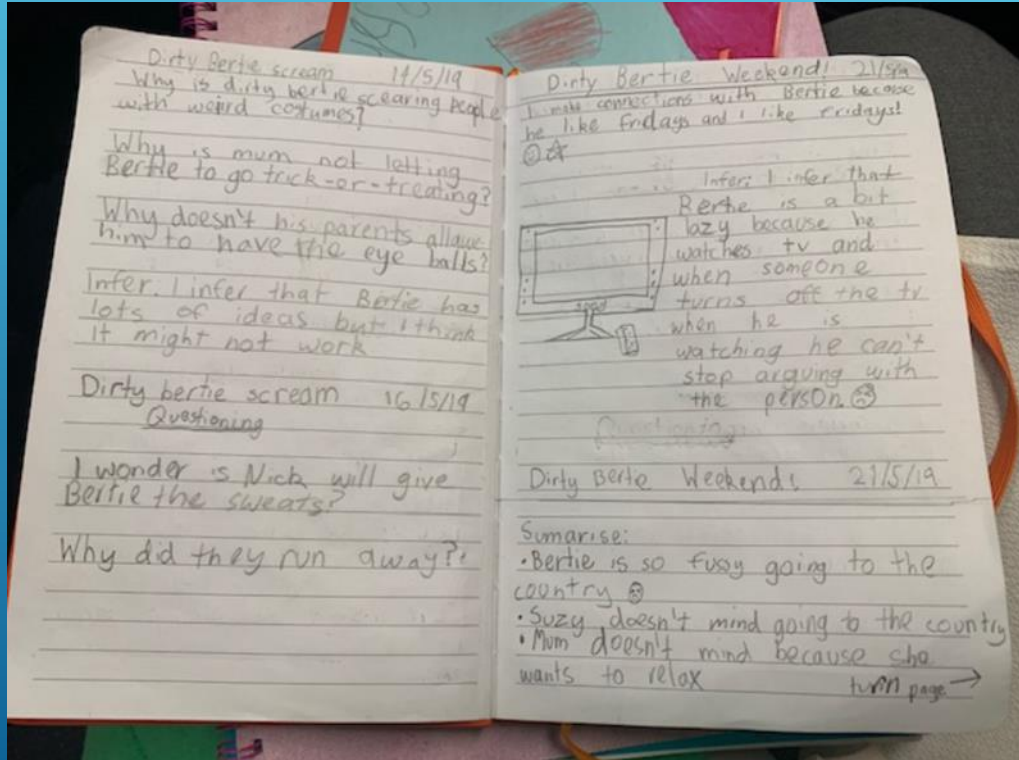 Dirty Bertie scream 14/5/19
Why is dirty bertie scearing people
with weird costumes?
Why is mum not letting
Bertie to go trick-or-treating?
Why doesn't his parents allawe
him to have the eye balls?
Infer. I infer that Bertie has
lots of ideas but I think
it might not work
Dirty bertie scream 16/5/19
Questioning
I wonder is Nick will give
Bertie the sweats?
Why did they run away?
Dirty Bertie Weekend! 21/5/19
I make connections with Bertie because
he like Fridays and i like Fridays!
Infer: I infer that
Bertie is a bit
lazy because he
watches tv and
when someone
turns off the tv
when he is
watching he can't
stop arguing with
the person.
Questioning
Dirty Bertie Weekend! 21/5/19
Sumarise:
•Bertie is so fussy going to the
country
•Suzy doesn't mind going to the country
•Mum doesn't mind because she
wants to relax turn page →